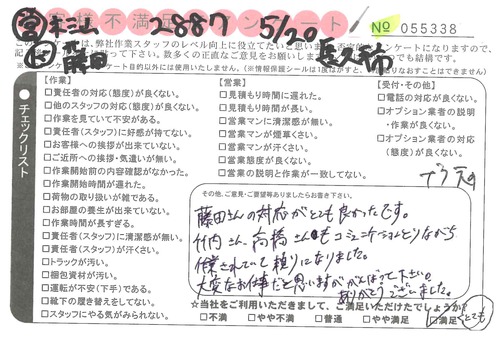 お客様不満足アンケート
No 055338
2887 5/20
藤田
【作業】
□責任者の対応(態度)が良くない。
□他のスタッフの対応(態度)が良くない。
□作業を見ていて不安がある。
□責任者(スタッフ)に好感が持てない。
□お客様への挨拶が出来ていない。
□ご近所への挨拶・気遣いが無い。
□作業開始前の内容確認がなかった。
□作業開始時間が遅れた。
□荷物の取り扱いが雑である。
□お部屋の養生が出来ていない。
□作業時間が長すぎる。
□責任者(スタッフ)に清潔感が無い。
□責任者(スタッフ)が汗くさい。
□トラックが汚い。
□梱包資材が汚い。
□運転が不安(下手)である。
□靴下の履き替えをしてない。
□スタッフにやる気がみられない。
【営業】
□見積もり時間に遅れた。
□見積もり時間が長い。
□営業マンに清潔感が無い。
□営業マンが煙草くさい。
□営業マンが汗くさい。
□営業態度が良くない。
□営業の説明と作業が一致してない。
【受付・その他】
□電話の対応が良くない。
□オプション業者の説明
・作業が良くない。
□オプション業者の対応
(態度)が良くない。
チェックリスト
その他、ご意見・ご要望等ありましたらお書き下さい。
藤田さんの対応がとても良かったです。
竹内さん、高橋さんもコミュニケーションとりながら
作業されていて頼りになりました。
大変なお仕事だと思いますががんばって下さい。
ありがとうございました。
★当社をご利用いただきまして、ご満足いただけたでしょうか?
□不満 □やや不満 □普通 □やや満足 □満足 とても